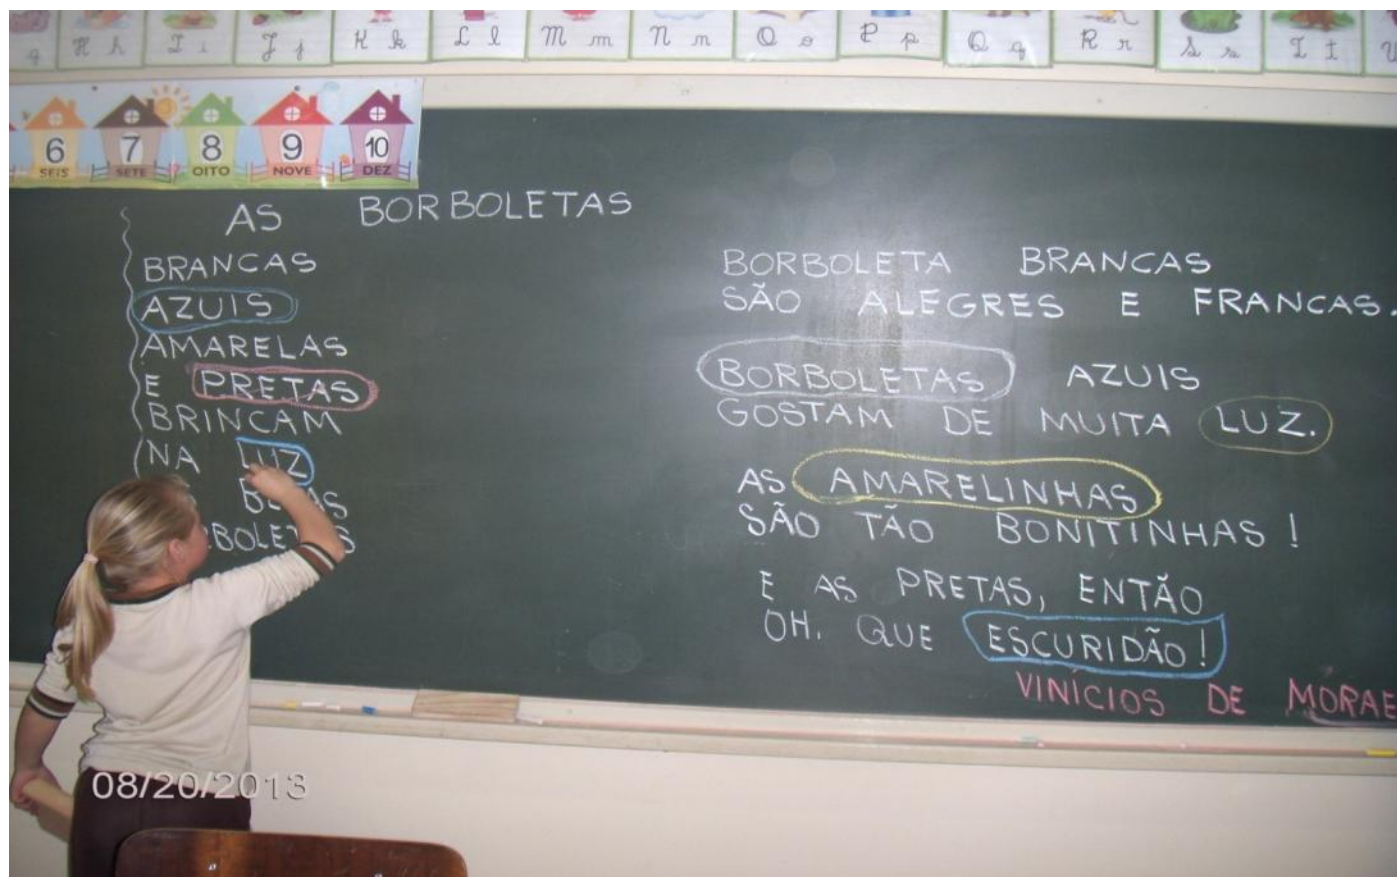 H h I i J j K k L l M m N n O o P p Q q R r S s T t
6 7 8 9 10
SEIS SETE OITO NOVE DEZ
AS BORBOLETAS
BRANCAS
AZUIS
AMARELAS
E PRETAS
BRINCAM
NA LUZ
BORBOLETA BRANCAS
SÃO ALEGRES E FRANCAS.
BORBOLETAS AZUIS
GOSTAM DE MUITA LUZ.
AS AMARELINHAS
SÃO TÃO BONITINHAS!
E AS PRETAS, ENTÃO
OH, QUE ESCURIDÃO!
VINÍCIOS DE MORAE
08/20/2013